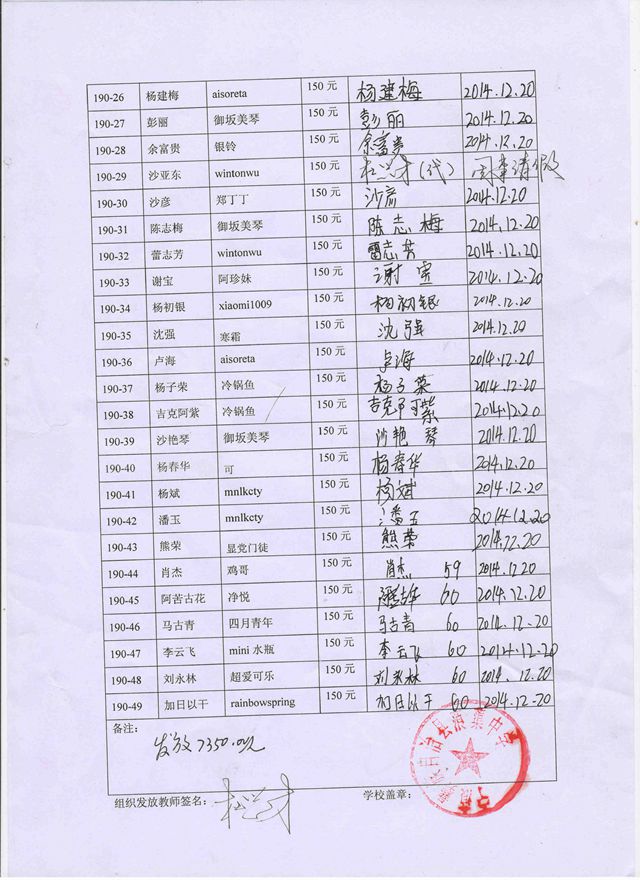 190-26 杨建梅 aisoreta 150 元 杨建梅 2014.12.20
190-27 彭丽 御坂美琴 150 元 彭丽 2014.12.20
190-28 余富贵 银铃 150 元 余富贵 2014.12.20
190-29 沙亚东 wintonwu 150 元 (代) 请假
190-30 沙彦 郑丁丁 150 元 沙彦 2014.12.20
190-31 陈志梅 御坂美琴 150 元 陈志梅 2014.12.20
190-32 蕾志芳 wintonwu 150 元 雷志芳 2014.12.20
190-33 谢宝 阿珍妹 150 元 谢宝 2014.12.20
190-34 杨初银 xiaomi1009 150 元 杨初银 2014.12.20
190-35 沈强 寒霜 150 元 沈强 2014.12.20
190-36 卢海 aisoreta 150 元 卢海 2014.12.20
190-37 杨子荣 冷锅鱼 150 元 杨子荣 2014.12.20
190-38 吉克阿紫 冷锅鱼 150 元 吉克阿紫 2014.12.20
190-39 沙艳琴 御坂美琴 150 元 沙艳琴 2014.12.20
190-40 杨春华 可 150 元 杨春华 2014.12.20
190-41 杨斌 mnlkcty 150 元 杨斌 2014.12.20
190-42 潘玉 mnlkcty 150 元 潘玉 2014.12.20
190-43 熊荣 显党门徒 150 元 熊荣 2014.12.20
190-44 肖杰 鸡哥 150 元 肖杰 59 2014.12.20
190-45 阿苦古花 净悦 150 元 60 2014.12.20
190-46 马古青 四月青年 150 元 马古青 60 2014.12.20
190-47 李云飞 mini 水瓶 150 元 李云飞 60 2014.12.20
190-48 刘永林 超爱可乐 150 元 刘永林 60 2014.12.20
190-49 加日以干 rainbowspring 150 元 加日以干 60 2014.12-20
备注:
发放7350.00元
组织发放教师签名: 学校盖章: